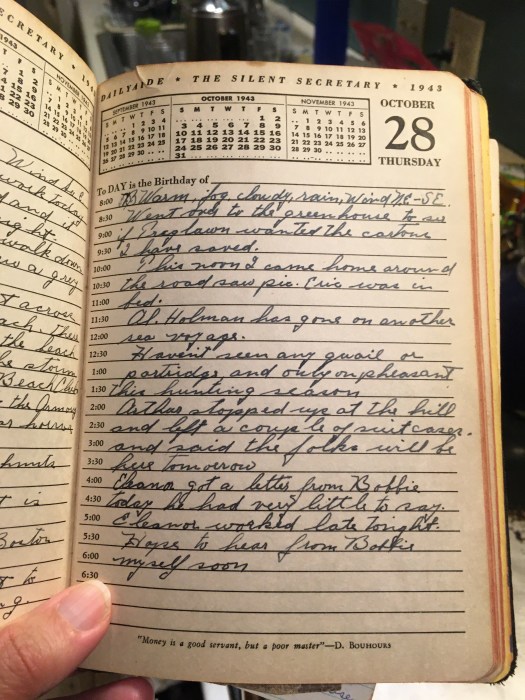 SECRETARY • 194
1943
NOVEMBER 194
Wind
work today
and it
night
walk down
saw a grey
t across
each. There
the beach
he storm
Beach Club
the Armory
ar horns
t is
Boston
t to
DAILYAIDE • THE SILENT SECRETARY • 1943
SEPTEMBER 1943
OCTOBER 1943
NOVEMBER 1943
S M T W T F S
S M T W T F S
S M T W T F S
1 2 3 4
1 2
1 2 3 4 5 6
5 6 7 8 9 10 11
3 4 5 6 7 8 9
7 8 9 10 11 12 13
12 13 14 15 16 17 18
10 11 12 13 14 15 16
14 15 16 17 18 19 20
19 20 21 22 23 24 25
17 18 19 20 21 22 23
21 22 23 24 25 26 27
26 27 28 29 30
24 25 26 27 28 29 30
28 29 30
31
OCTOBER
28
THURSDAY
To DAY is the Birthday of
8:00 Warm, fog cloudy, rain, Wind NE-SE.
8:30 Went over to the greenhouse to see
9:00 if wanted the cartons
9:30 I have saved.
10:00 This noon I came home around
10:30 the road saw pic. Eric was in
11:00 bed.
11:30 Al. Holman has gone on another
12:00 sea voyage.
12:30 Haven't seen any quail or
1:00 partridge and only on pheasant
1:30 this hunting season
2:00 Arthur stopped up at the hill
2:30 and left a couple of suitcases.
3:00 and said the folks will be
3:30 here tomorrow
4:00 Eleanor got a letter from Bobbie
4:30 today he had very little to say.
5:00 Eleanor worked late tonight.
5:30 Hope to hear from Bobbie
6:00 myself soon
6:30
"Money is a good servant, but a poor master"—D. BOUHOURS